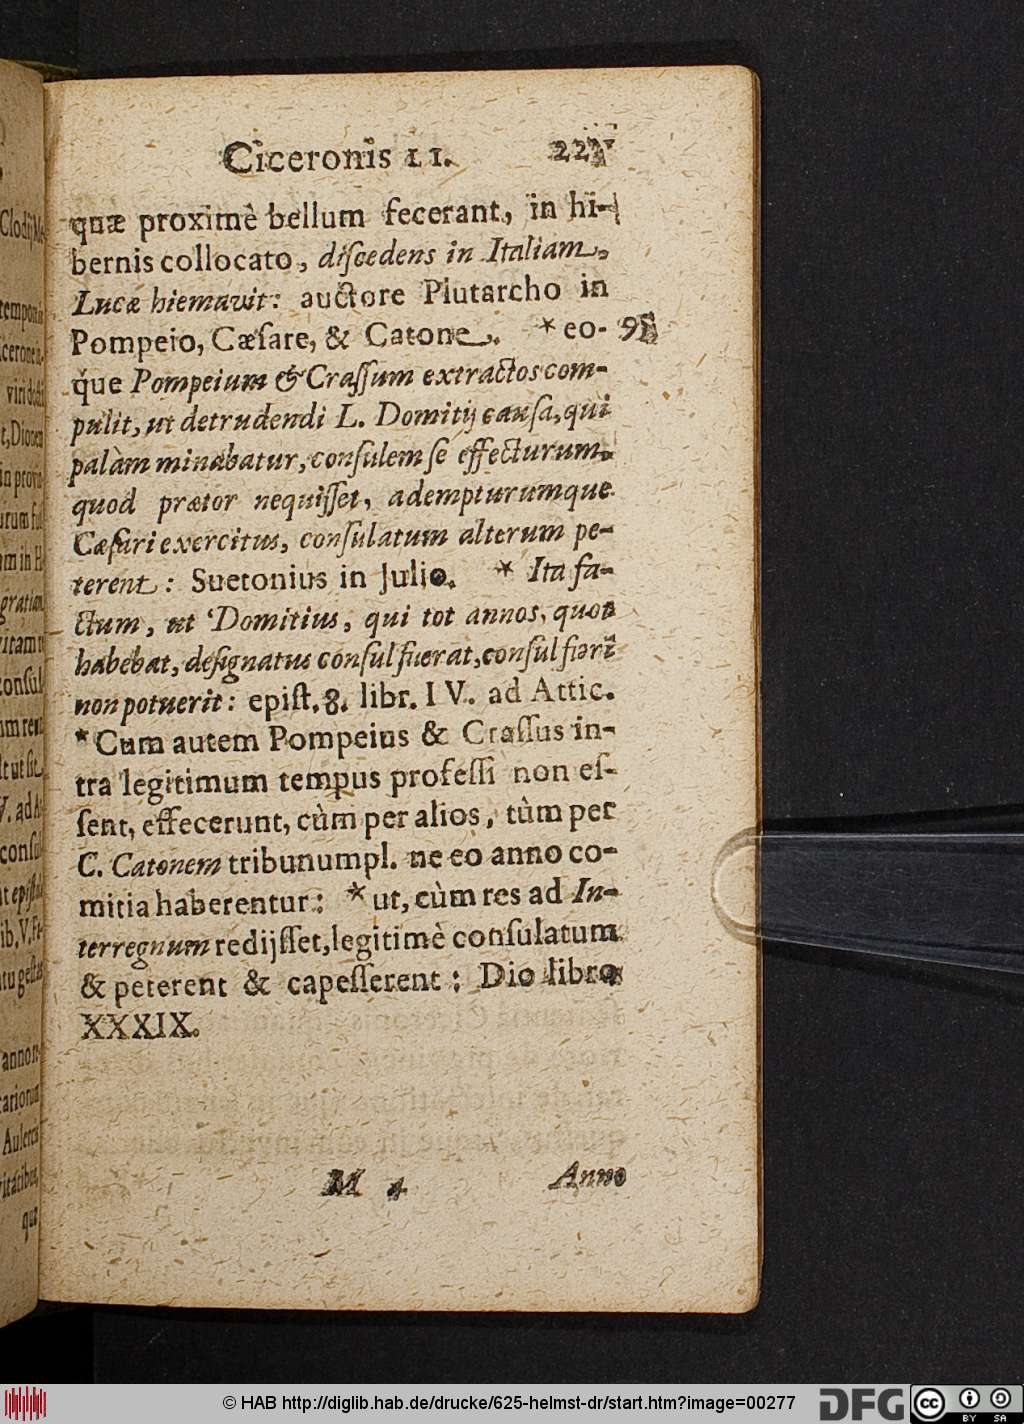 Ciceronis II.
quæ proximè bellum fecerant, in hi-
bernis collocato, discedens in Italiam,
Lucæ hiemavit: auctore Plutarcho in
Pompeio, Cæsare, & Catone. * eo-
q́ue Pompeium & Crassum extractos com-
pulit, ut detrudendi L. Domitij causa, qui
palàm minabatur, consulem se effecturum,
quod prætor nequisset, adempturumque
Cæsari exercitus, consulatum alterum pe-
terent: Suetonius in Julio. * Ita fa-
ctum, ut Domitius, qui tot annos, quot
habebat, designatus consul fuerat, consul fieri
non potuerit: epist. 8. libr. IV. ad Attic.
* Cum autem Pompeius & Crassus in-
tra legitimum tempus professi non es-
sent, effecerunt, cùm per alios, tùm per
C. Catonem tribunum pl. ne eo anno co-
mitia haberentur: * ut, cùm res ad In-
terregnum redijsset, legitimè consulatum
& peterent & capesserent: Dio libro
XXXIX.
M 4 Anno
Clodij
viri
Dionem
in provin
um in H
gratiam
vitam
consul
V. ad A
consul
epist
lib. V.
anno
Aulerci
vitatibus,
quæ
© HAB http://diglib.hab.de/drucke/625-helmst-dr/start.htm?image=00277
DFG
cc BY SA